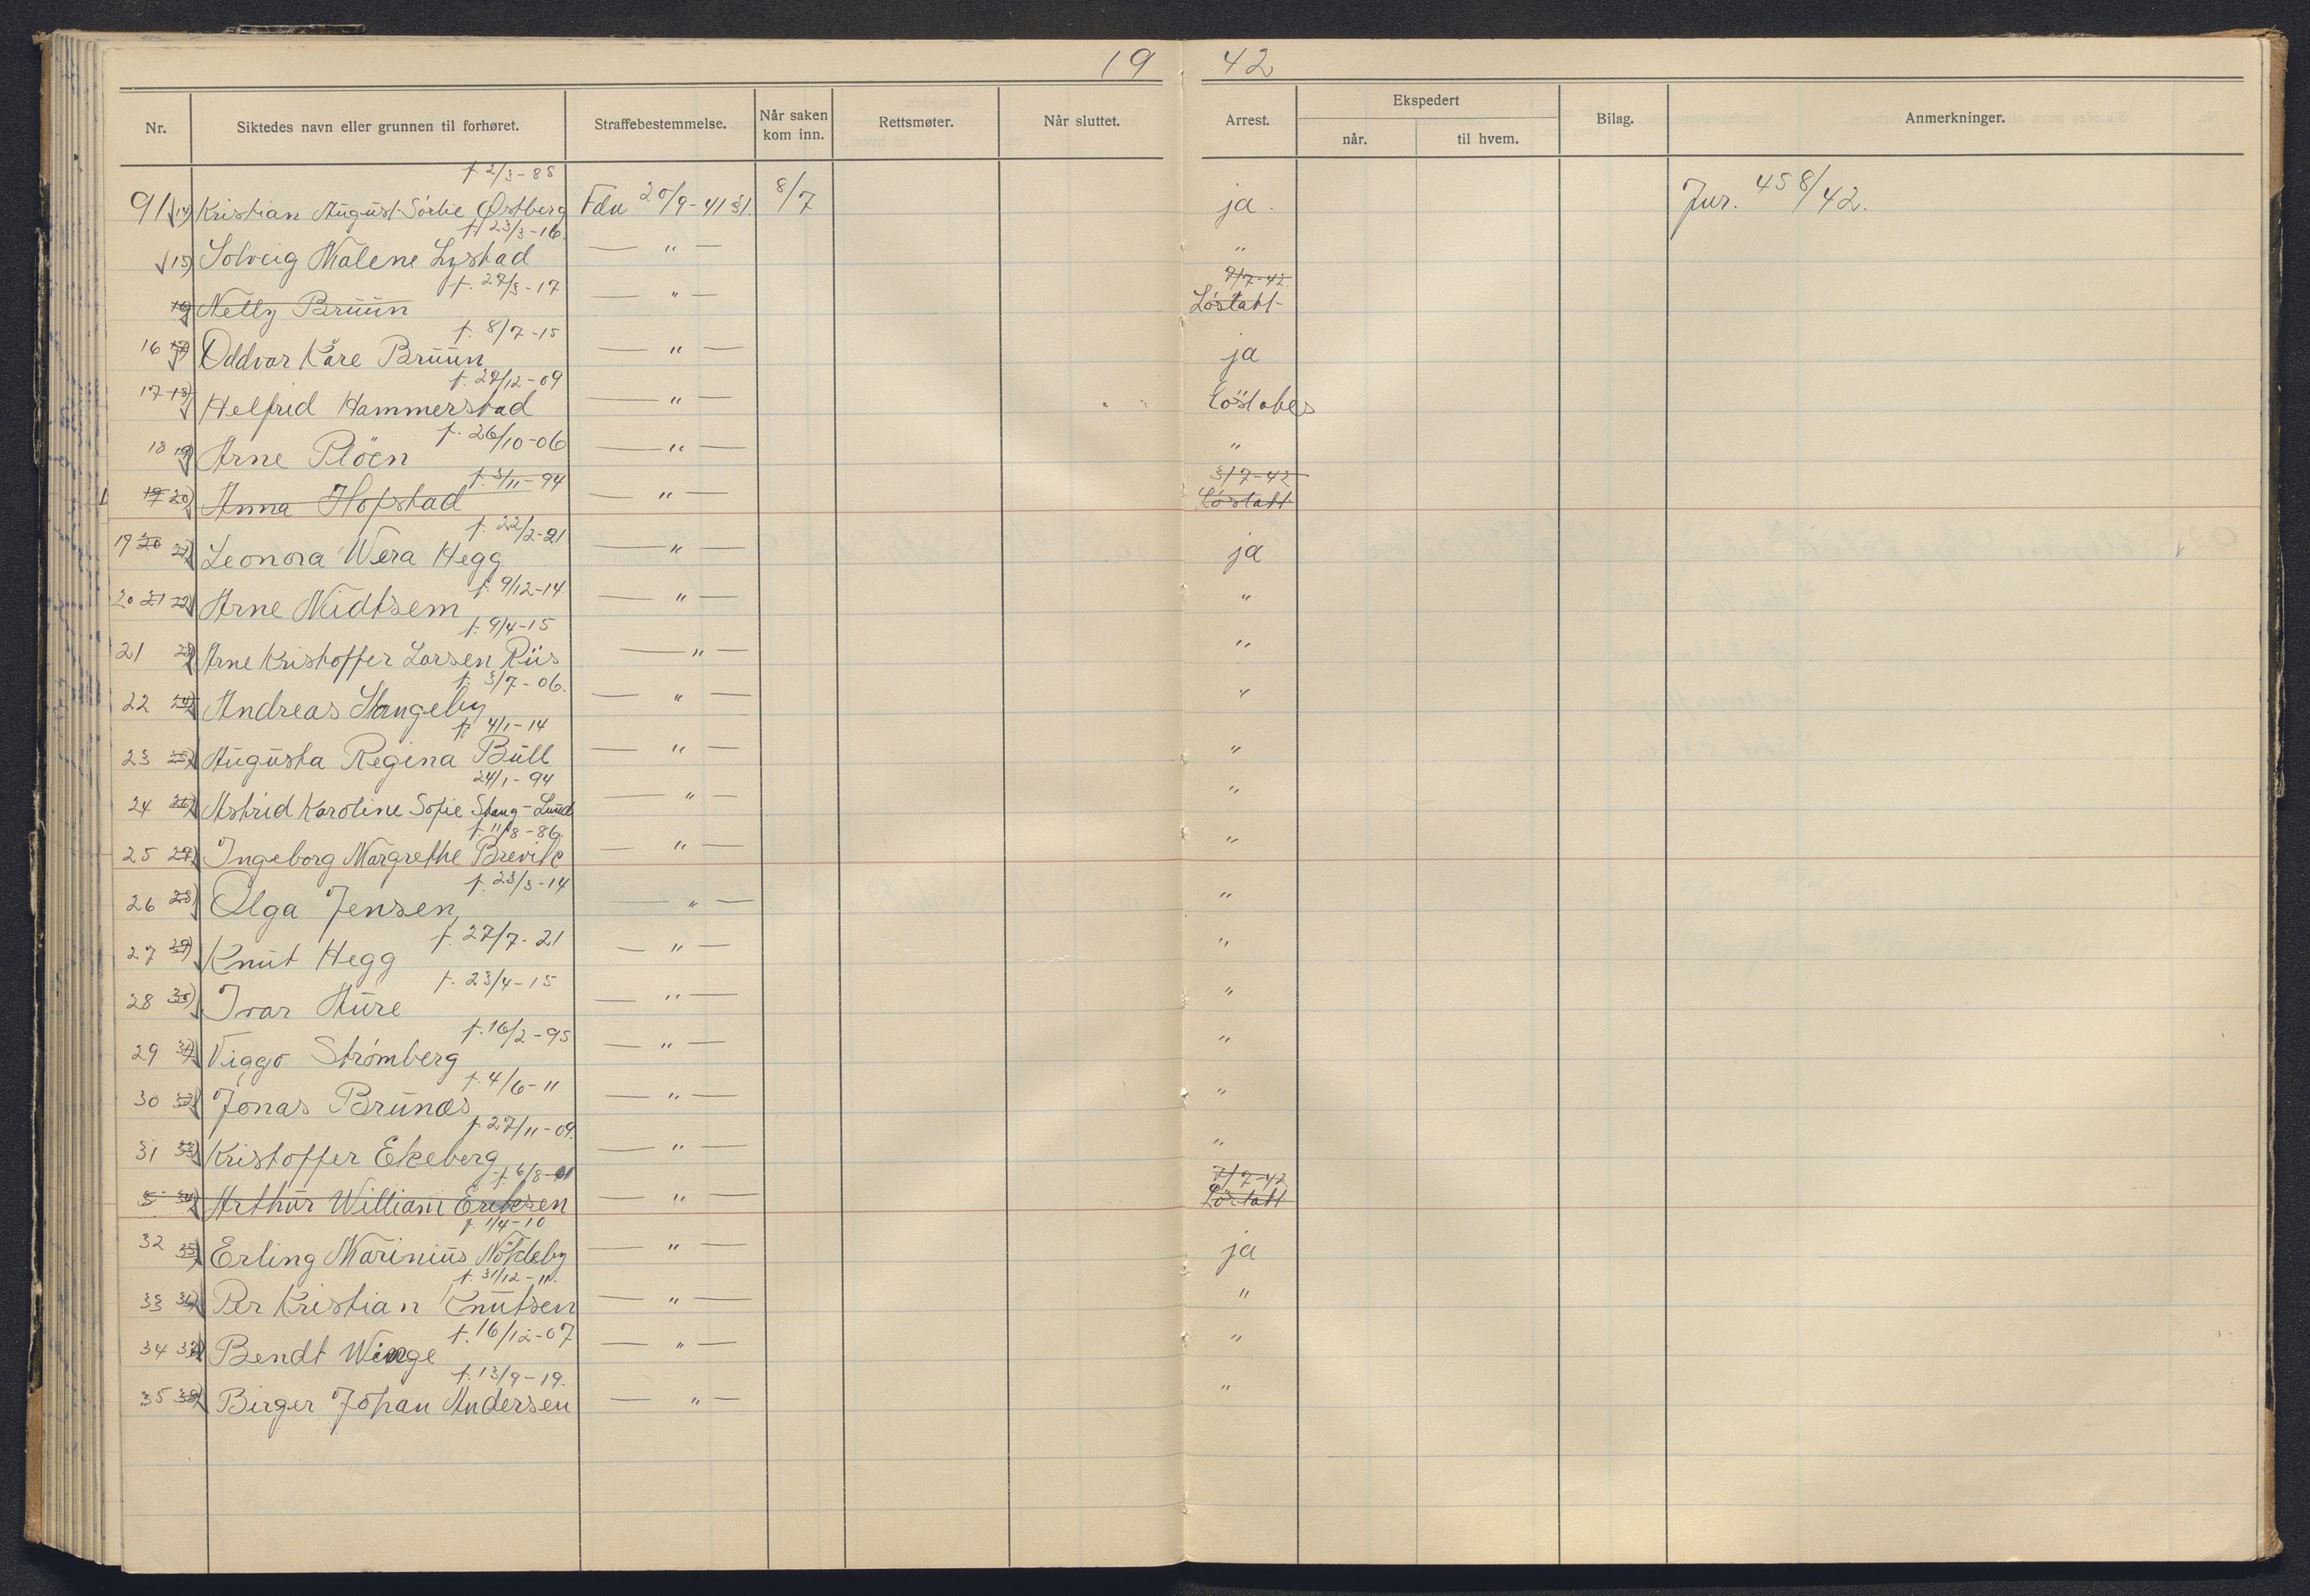 19 42
Nr. Siktedes navn eller grunnen til forhøret. Straffebestemmelse. Når saken kom inn. Rettsmøter. Når sluttet. Arrest. Ekspedert når. til hvem. Bilag. Anmerkninger.
f. 2/3-88
91 14) Kristian August Sörlie Østberg Fdn 20/9-41 §1. 8/7 ja. Jur. 458/42.
f. 23/3-16.
15) Solveig Malene Lystad — " — "
f. 27/3-17 9/7-42.
16) Nelly Bruun — " — Löslatt
f. 8/7-15
16 17) Oddvar Kåre Bruun — " — ja
f. 27/12-09
17 18) Helfrid Hammerstad — " — Löslates
f. 26/10-06
18 19) Arne Plöen — " — "
f. 3/11-94 3/7-42
19 20) Anna Hofstad — " — Löslatt
f. 22/2-21
19 20 21) Leonora Wera Hegg — " — ja
f. 9/12-14
20 21 22) Arne Midtsem — " — "
f. 9/4-15
21 23) Arne Kristoffer Larsen Riis — " — "
f. 3/7-06.
22 24) Andreas Stangeby — " — "
f. 4/1-14
23 25) Augusta Regina Bull — " — "
24/1-94
24 26) Astrid Karoline Sofie Stang-Lund — " — "
f. 11/8-86.
25 27) Ingeborg Margrethe Brevik — " — "
f. 23/3-14
26 28) Olga Jensen — " — "
f. 27/7-21
27 29) Knut Hegg — " — "
f. 23/4-15
28 30) Ivar Aure — " — "
f. 16/2-95
29 31) Viggo Strömberg — " — "
f. 4/6-11
30 32) Jonas Brunæs — " — "
f. 27/11-09.
31 33) Kristoffer Ekeberg — " — "
f. 6/8-01 7/7-42
34) Arthur William Eriksen — " — Löslatt
f. 1/4-10
32 35) Erling Marinius Nökleby — " — ja
f. 31/12-11.
33 36) Per Kristian Knutsen — " — "
f. 16/12-07
34 37) Bendt Winge — " — "
f. 13/9-19.
35 38) Birger Johan Andersen — " — "